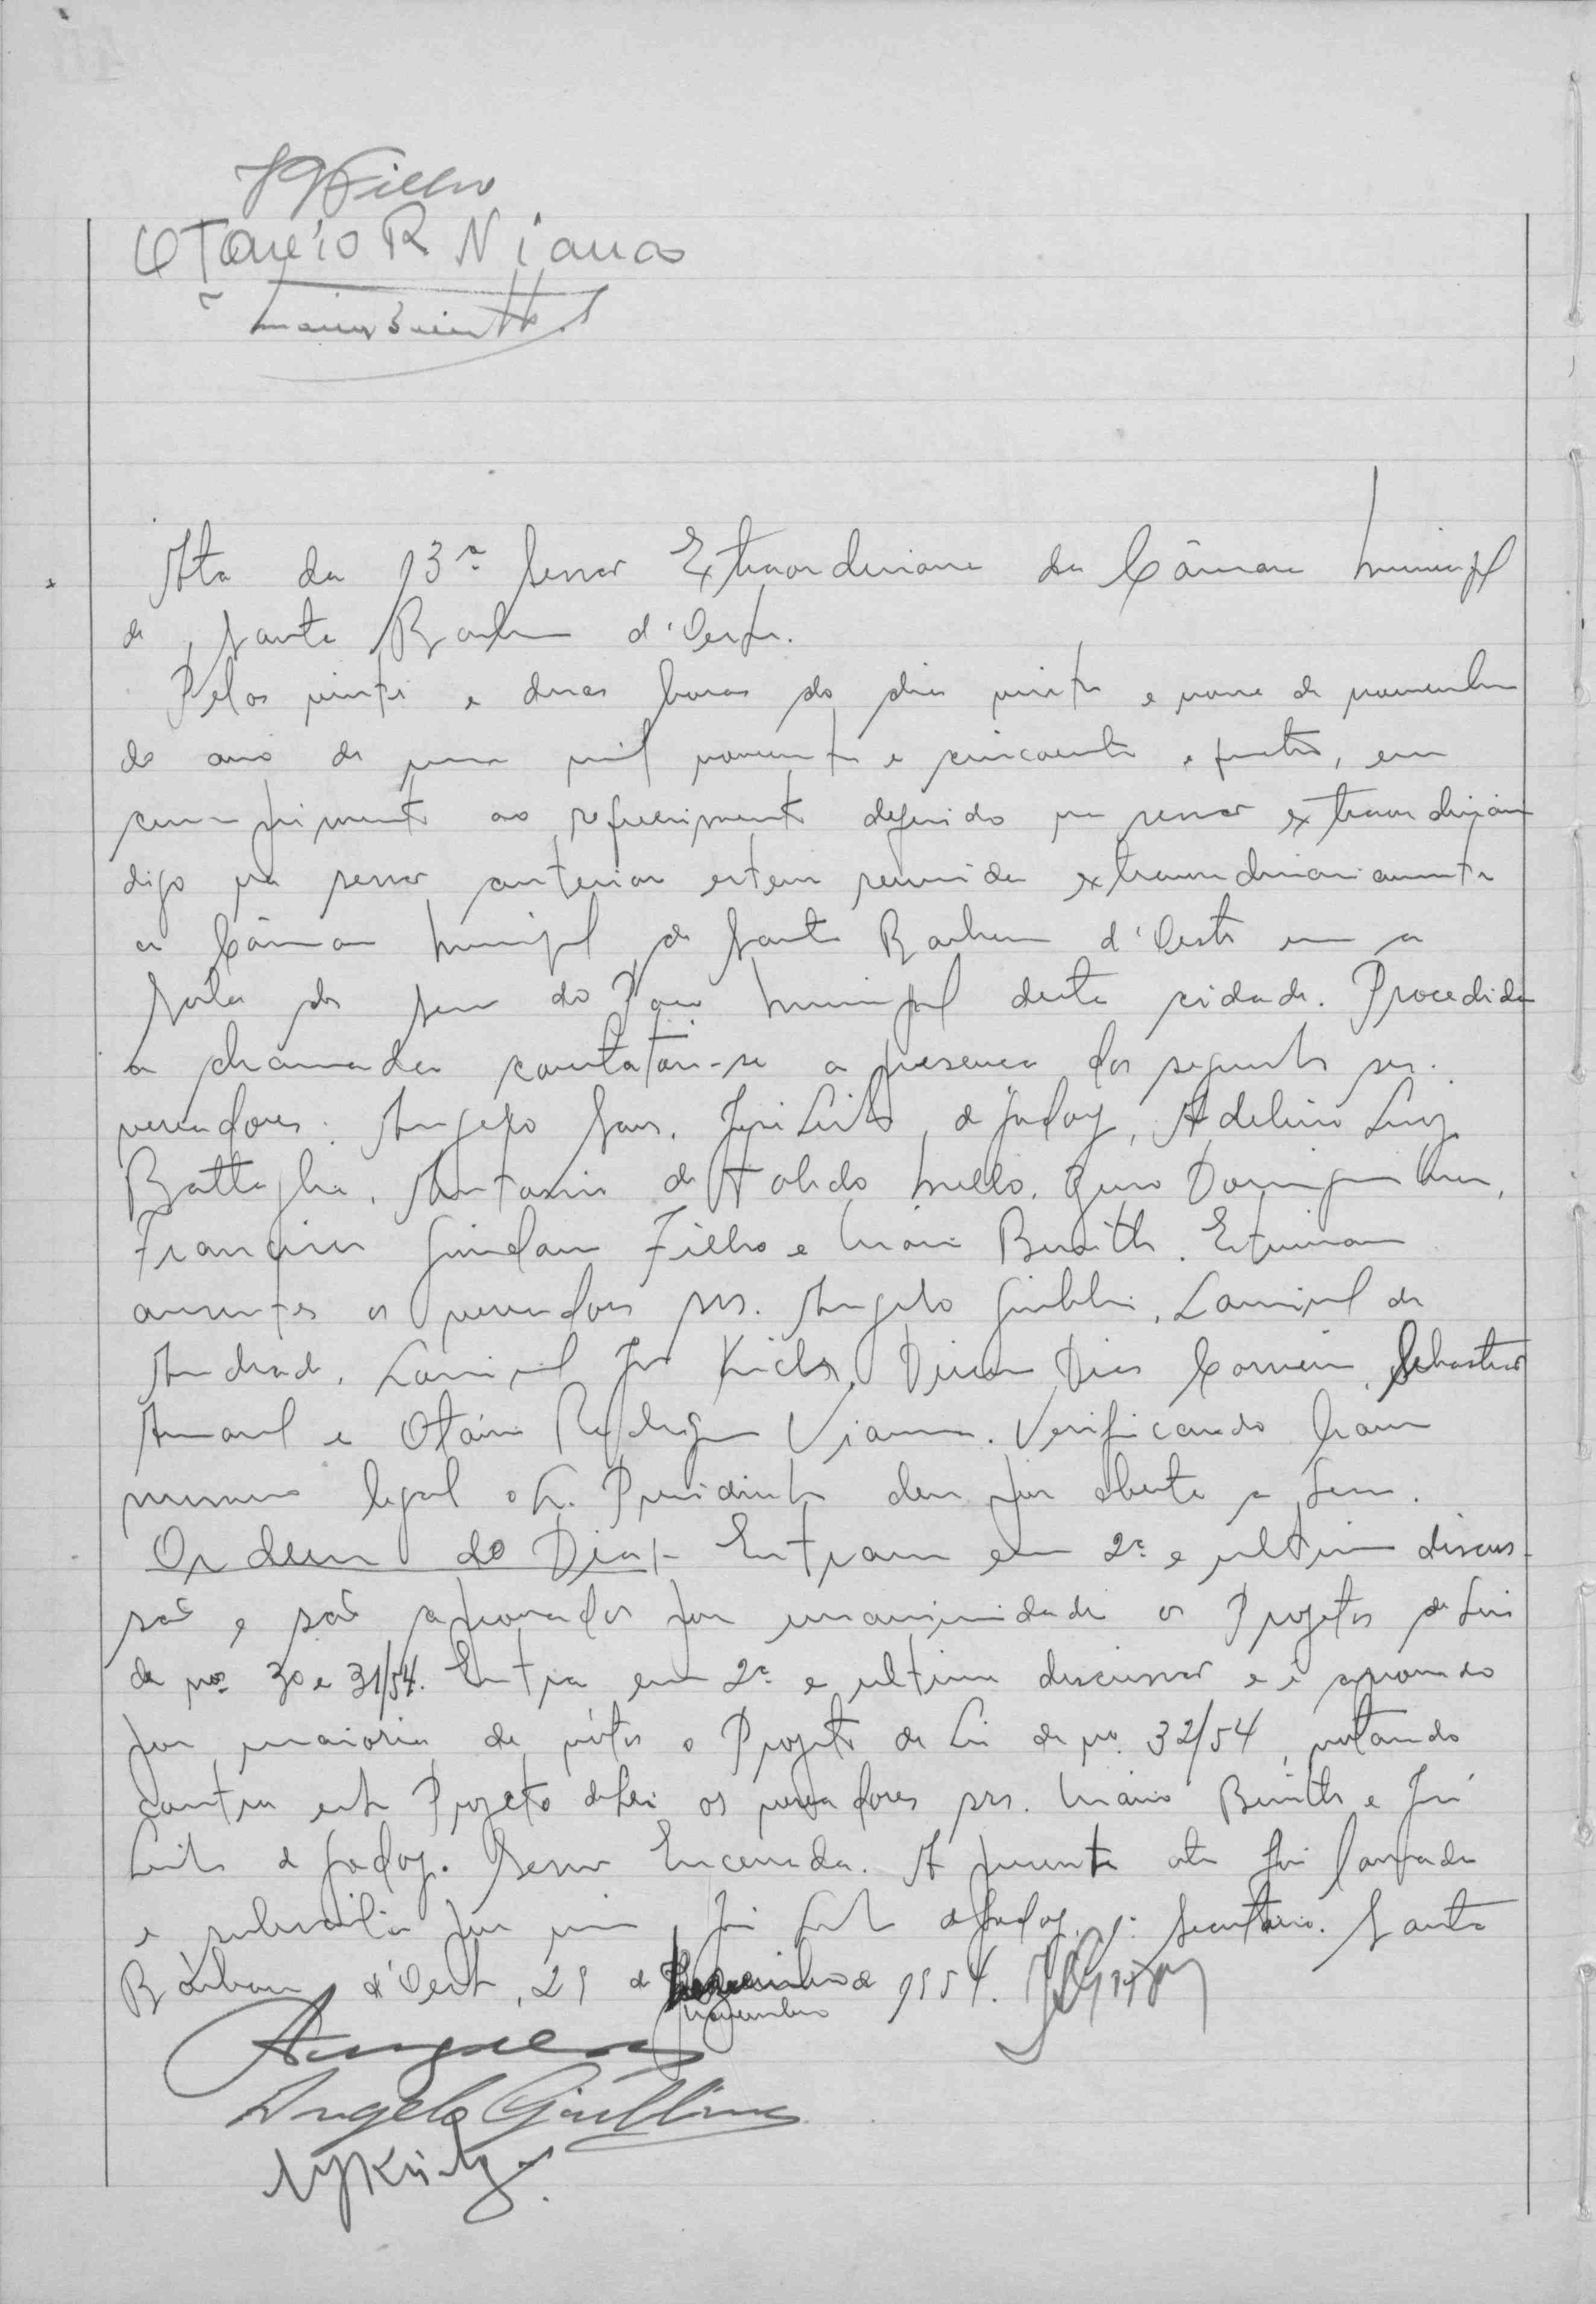 Otavio R Viana
Ata da 13ª Sessão Extraordinaria da Câmara Municipal
de Santa Barbara d'Oeste.
Pelas vinte e duas horas do dia vinte e nove de novembro
do ano de um mil novecentos e cincoenta e quatro, em
cumprimento ao requerimento deferido na sessão extraordinária
digo na sessão anterior esteve reunida extraordinariamente
a Câmara Municipal de Santa Barbara d'Oeste em a
Sala das do Paço Municipal desta cidade. Procedida
a chamada constatou-se a presença dos seguintes srs.
vereadores: Angelo Sans, José Leite de Godoy, Adelino Luiz
Battaglia, Antonio de Toledo Mello, Domingues
Francisco Filho e Mário. Estiveram
ausentes os vereadores srs. Angelo Giubbina, Laurival de
Andrade, Dirceu Dias Carneiro, Sebastião
Amaral e Otávio Rodrigues Viana. Verificando haver
numero legal o Sr. Presidente deu por aberta a sessão.
Ordem do Dia - Entram em 2ª e ultima discus-
são e são aprovados por unanimidade os Projetos de Leis
de nos 30 e 31/54. Entra em 2ª e ultima discussão e é aprovado
por maioria de vótos o Projeto de Lei de no. 32/54, votando
contra este Projeto de Lei os vereadores srs. Mário e José
Leite de Godoy. Sessão Encerrada. A presente ata foi lavrada
e subscrita por mim, José Leite de Godoy, 1º Secretário. Santa
Bárbara d'Oeste, 29 de novembro de 1954.
Angelo Giubbina